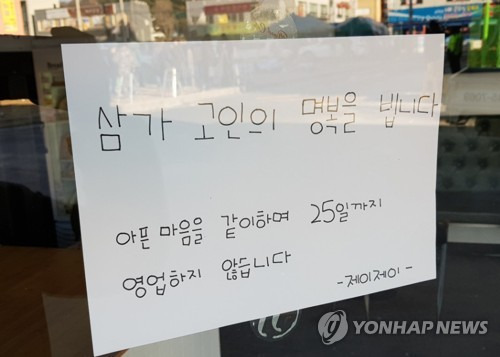 삼가 고인의 명복을 빕니다
아픈 마음을 같이하며 25일까지
영업하지 않습니다
-제이제이-
YONHAP NEWS